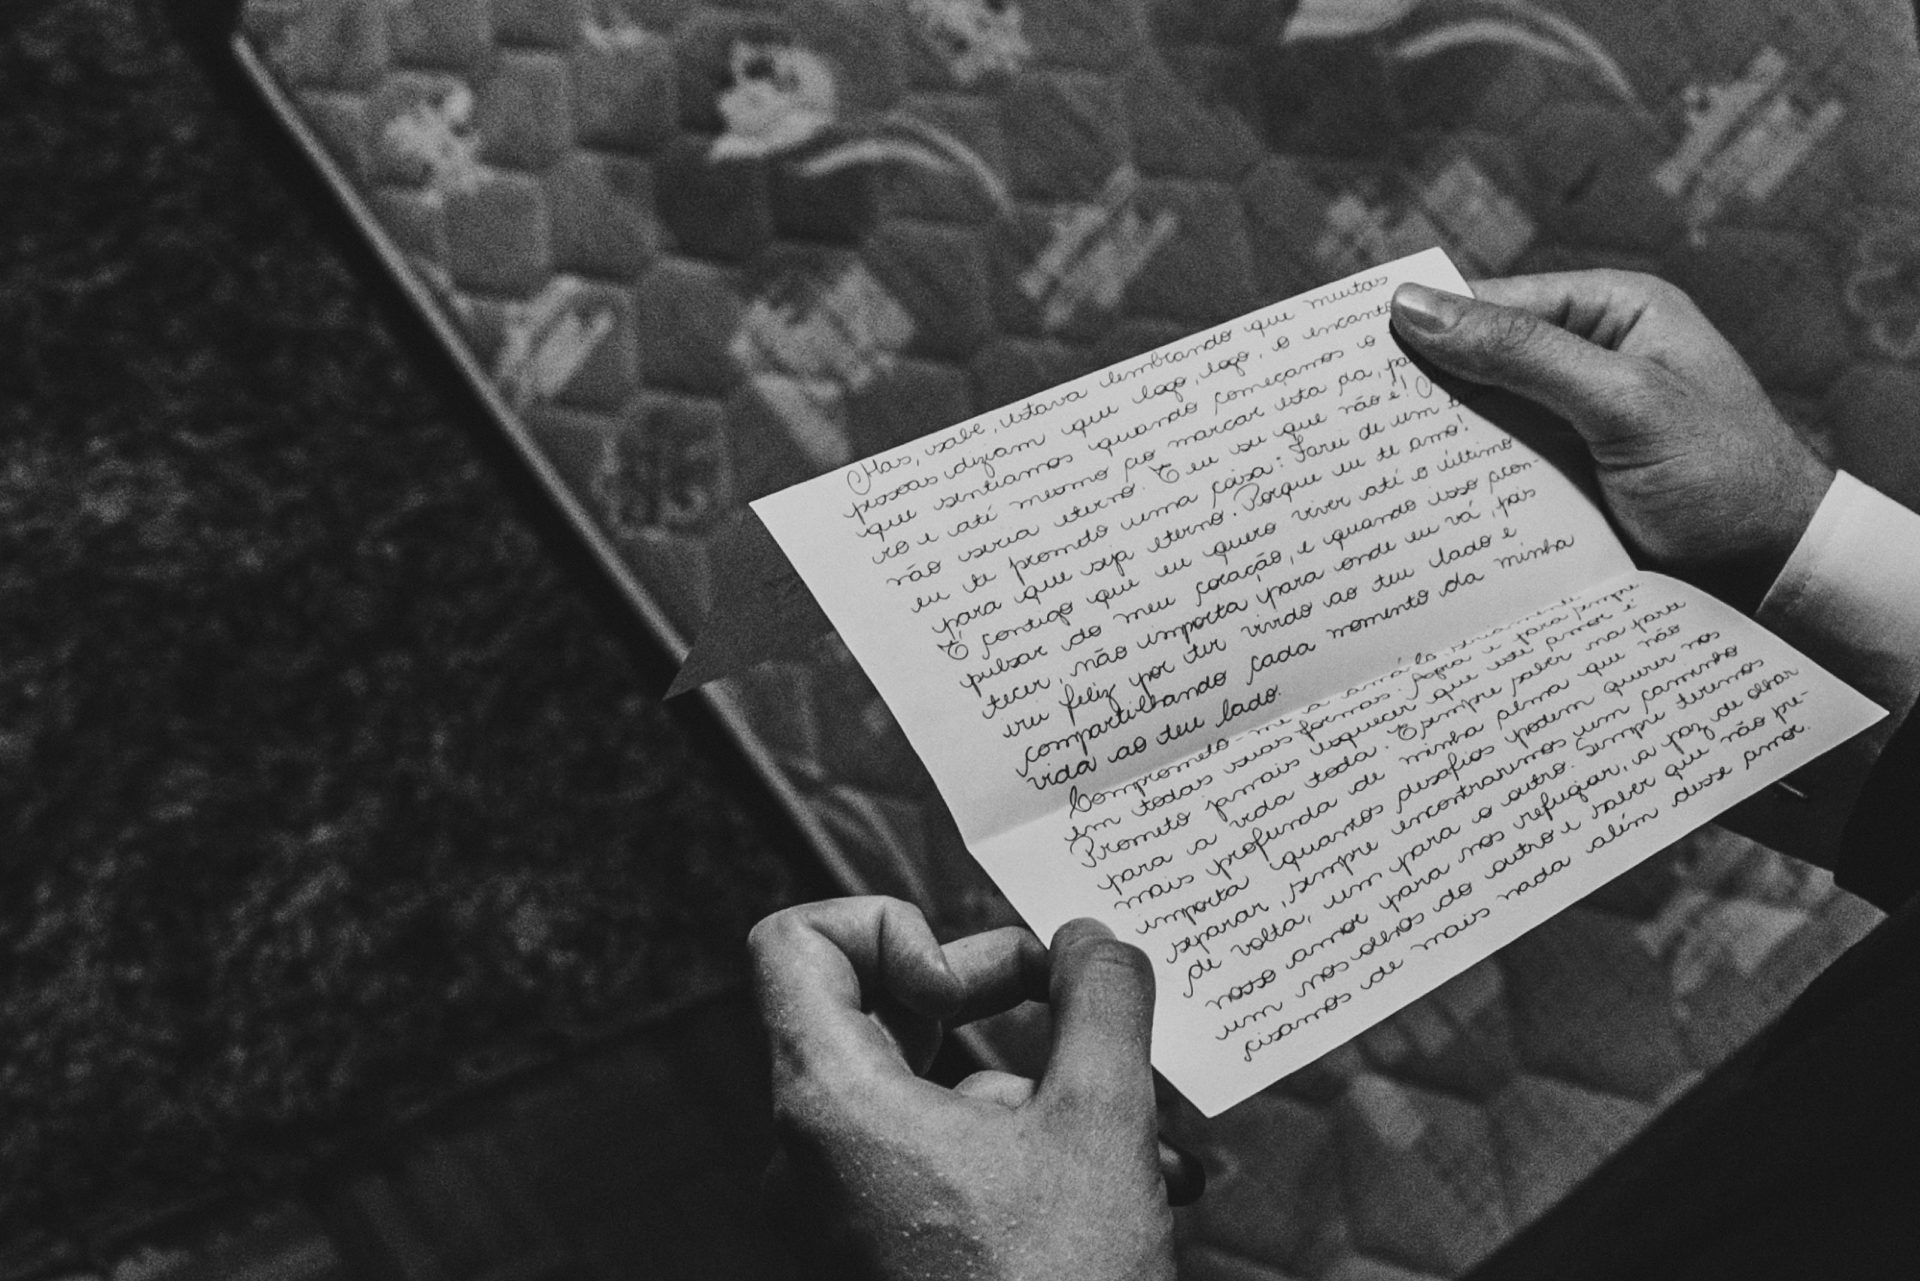 Mas, sabe, estava lembrando que muitas
pessoas diziam que logo, logo, o encanto
que sentíamos quando começamos o
ro e até mesmo ao marcar esta da, pa
não seria eterno. E eu sei que não é!
eu te prometo uma coisa: Farei de um
para que seja eterno. Porque eu te amo!
É contigo que eu quero viver até o último
pulsar do meu coração, e quando isso acon-
tecer, não importa para onde eu vá, pois
irei feliz por ter vivido ao teu lado e
compartilhando cada momento da minha
vida ao teu lado.
Comprometo-me a amá-lo seriamente
em todas suas formas. Agora e para sempre
Prometo jamais esquecer que este amor é
para a vida toda. E sempre saber na parte
mais profunda de minha alma que não
importa quantos desafios podem querer nos
separar, sempre encontraremos um caminho
de volta, um para o outro. Sempre teremos
nosso amor para nos refugiar, a paz de olhar
um nos olhos do outro e saber que não pre-
cisamos de mais nada além desse amor.